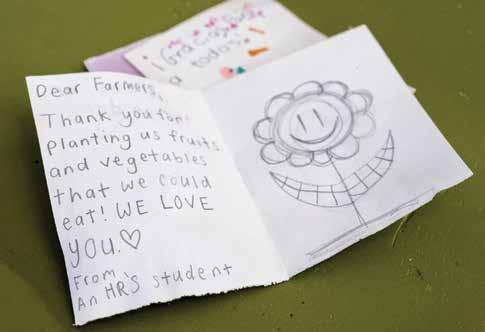 ¡Gracias
a todos!
Dear Farmers,
Thank you for
Planting us fruits
and vegetables
that we could
eat! WE LOVE
YOU.♡
From,
An HR'S student